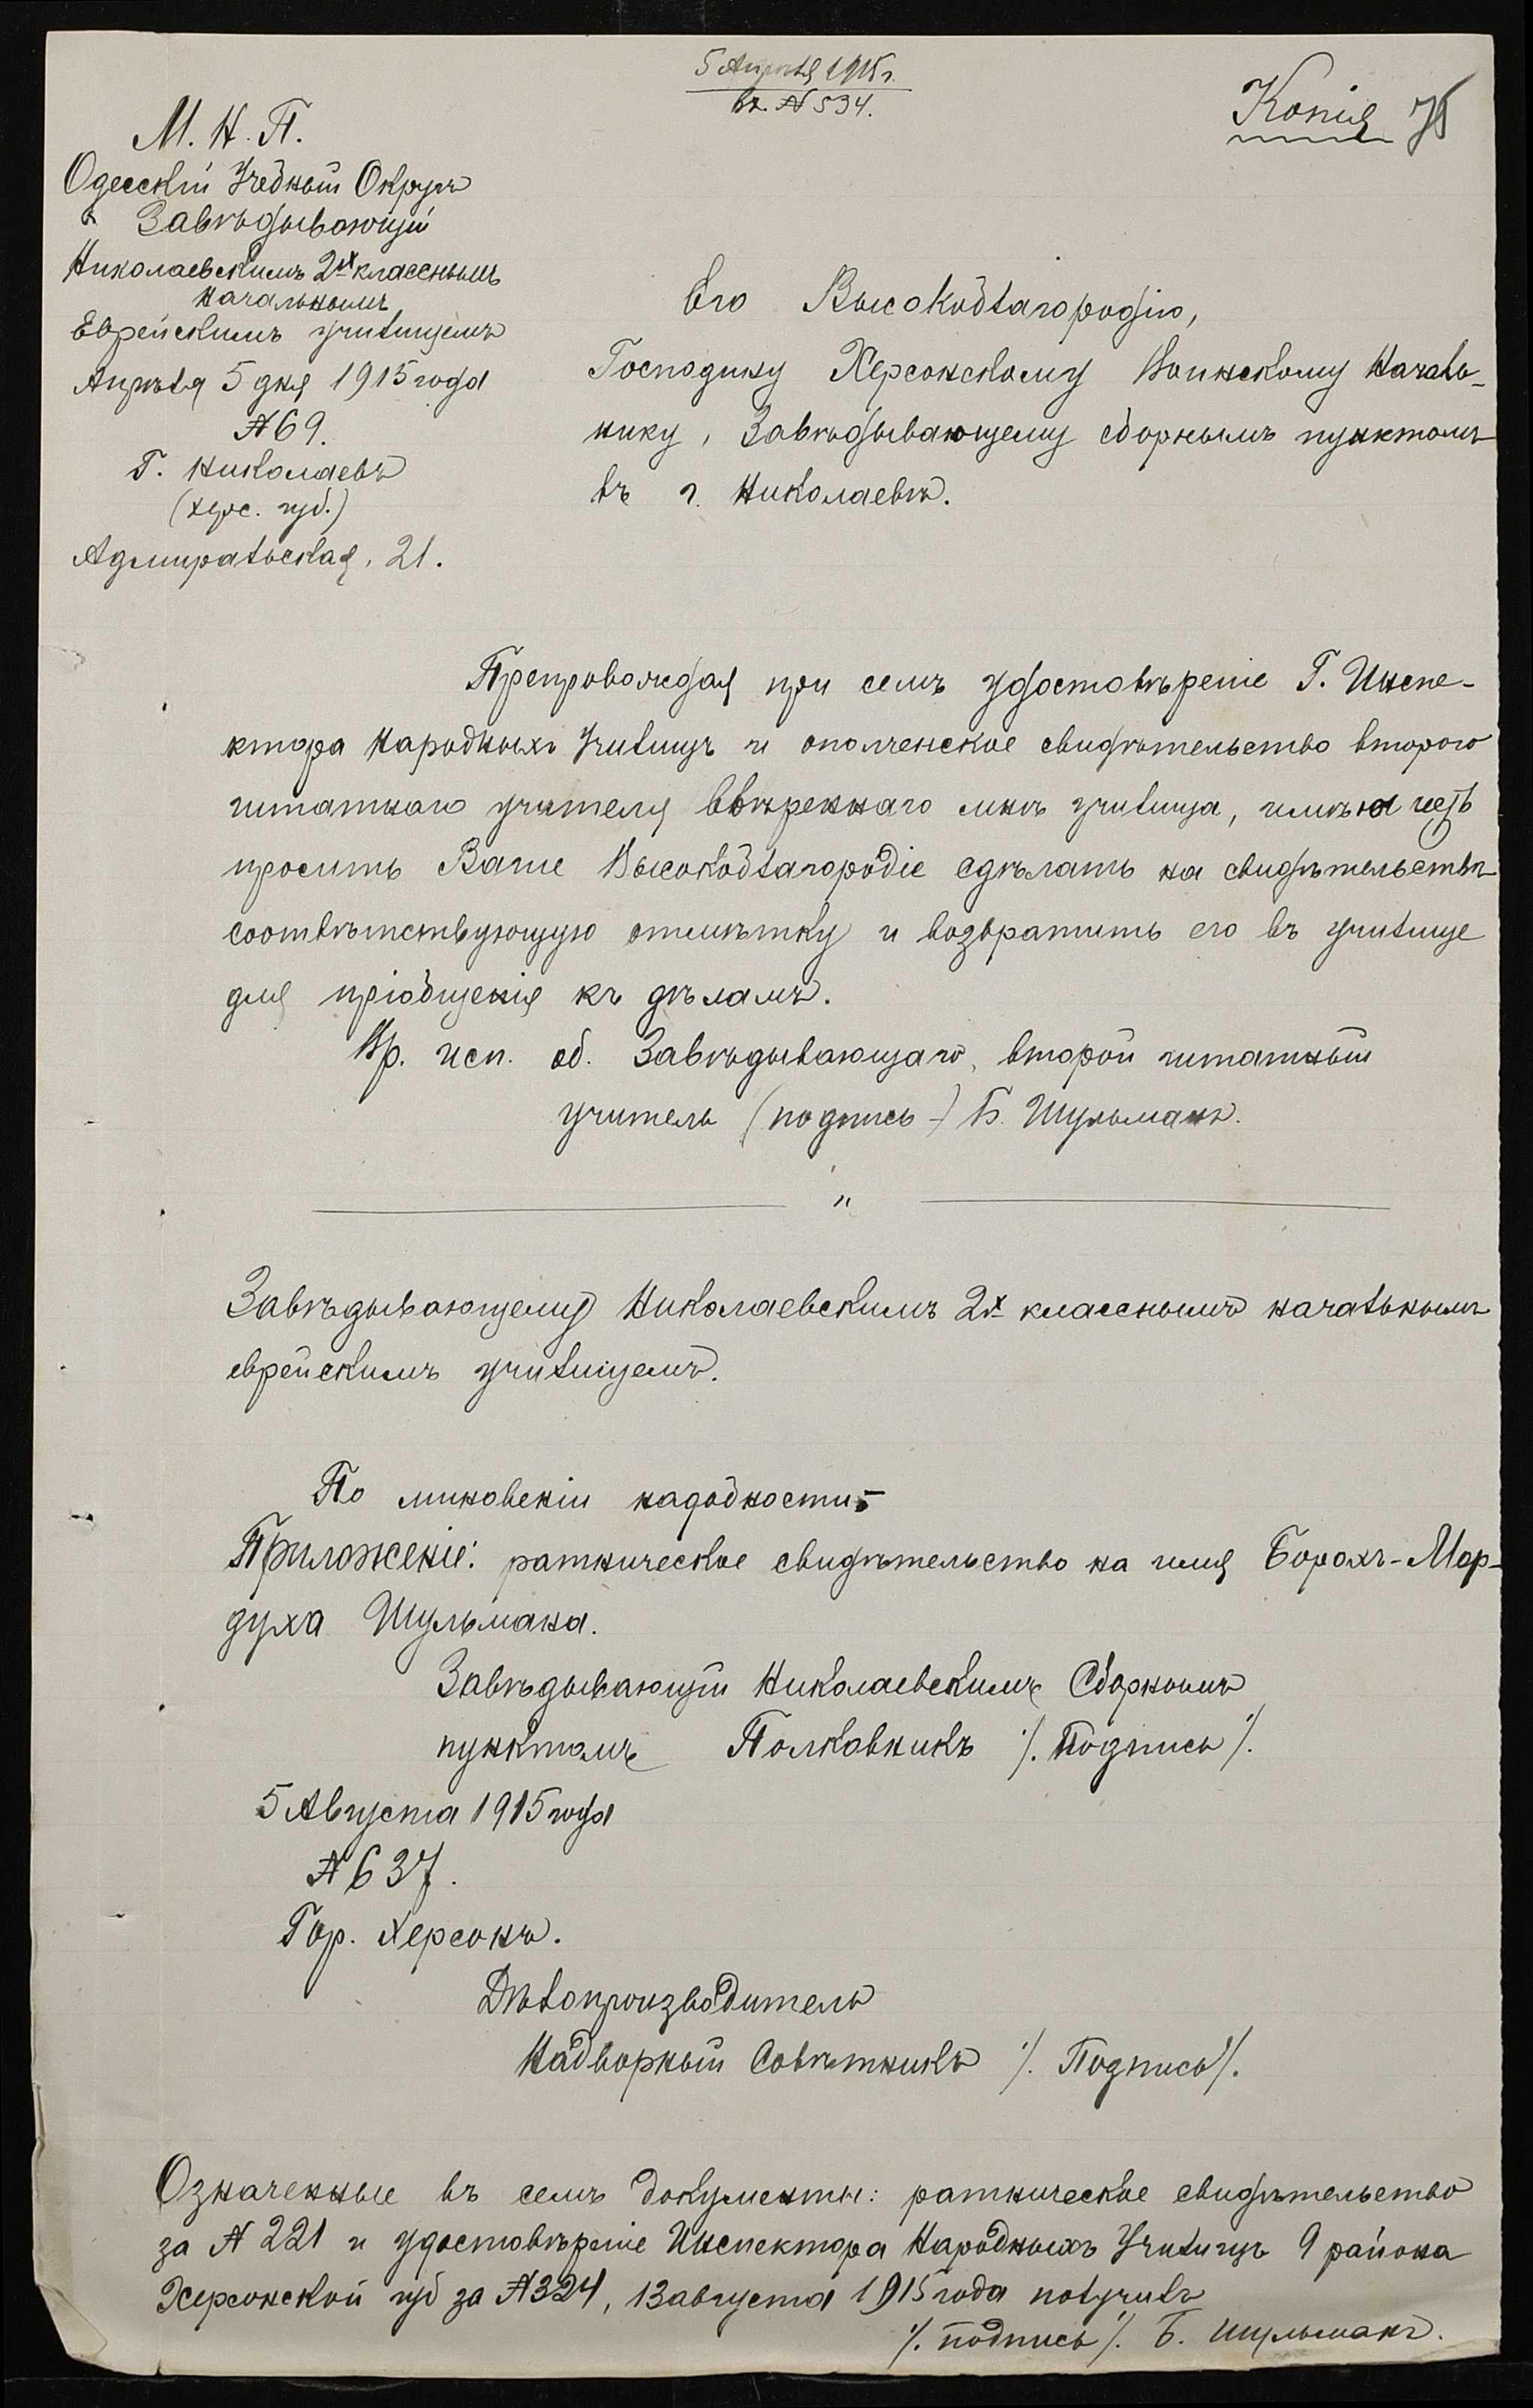 5 Апрѣля 1915 г.
Вх. № 534.
Копія 75
М. Н. П.
Одесскій Учебный Округъ
Завѣдывающій
Николаевскимъ 2хъ класснымъ
начальнымъ
Еврейскимъ училищемъ
Апрѣля 5 дня 1915 года
№ 69.
Г. Николаевъ
(Херс. губ.)
Адмиральская, 21.
Его Высокоблагородію,
Господину Херсонскому Воинскому Началь-
нику, Завѣдывающему сборнымъ пунктомъ
въ г. Николаевѣ.
Препровождая при семъ удостовѣреніе Г. Инспе-
ктора Народныхъ Училищъ и ополченское свидѣтельство второго
штатнаго учителя ввѣреннаго мнѣ училища, имѣю честь
просить Ваше Высокоблагородіе сдѣлать на свидѣтельствѣ
соотвѣтствующую отмѣтку и возвратить его въ училище
для пріобщенія къ дѣламъ.
Вр. исп. об. Завѣдывающаго, второй штатный
учитель (подпись-) Б. Шульманъ.
"
Завѣдывающему Николаевскимъ 2х класснымъ начальнымъ
еврейскимъ училищемъ.
По минованіи надобности.
Приложеніе: ратническое свидѣтельство на имя Борохъ-Мор-
духа Шульмана.
Завѣдывающій Николаевскимъ Сборнымъ
пунктомъ Полковникъ /. Подпись /.
5 Августа 1915 года
№ 637.
Гор. Херсонъ.
Дѣлопроизводитель
Надворный Совѣтникъ /. Подпись /.
Означенные въ семъ документы: ратническое свидѣтельство
за № 221 и удостовѣреніе Инспектора Народныхъ Училищъ 9 района
Херсонской губ за № 324, 13 августа 1915 года получилъ
/. подпись /. Б. Шульманъ.